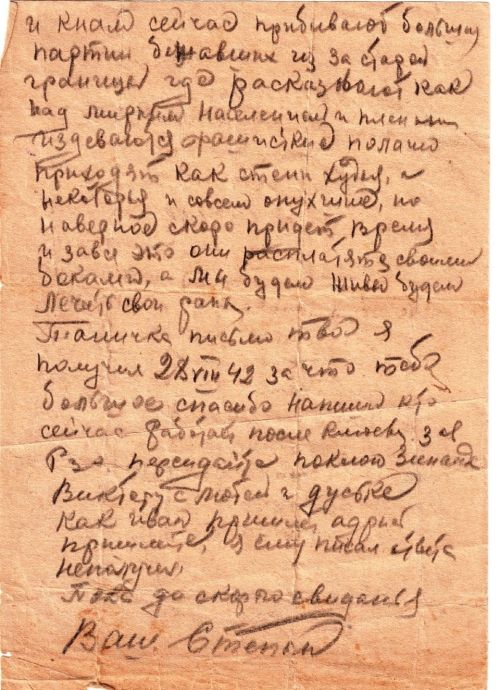 и кнам сейчас прибивают большие
партии бежавших из за старой
границы где расказывают как
над мирным населением и
издеваются фашисткие палачи
приходят как стени худыя, а
некоторыя и совсем опухшие, но
наверное скоро придет время
и завсе это они расплатятся своими
боками, а мы будем живы будем
лечить свои раны.
Таничка письмо твое я
получил 28 VIII 42 за что тебе
большое спасибо напиши кто
сейчас работает после за
передайте поклон
Виктору с Любой и Дуське
как Иван пришлет адрес
пришлите, я ему писал ответа
неполучил
Пока до скорого свиданья
Ваш Степан